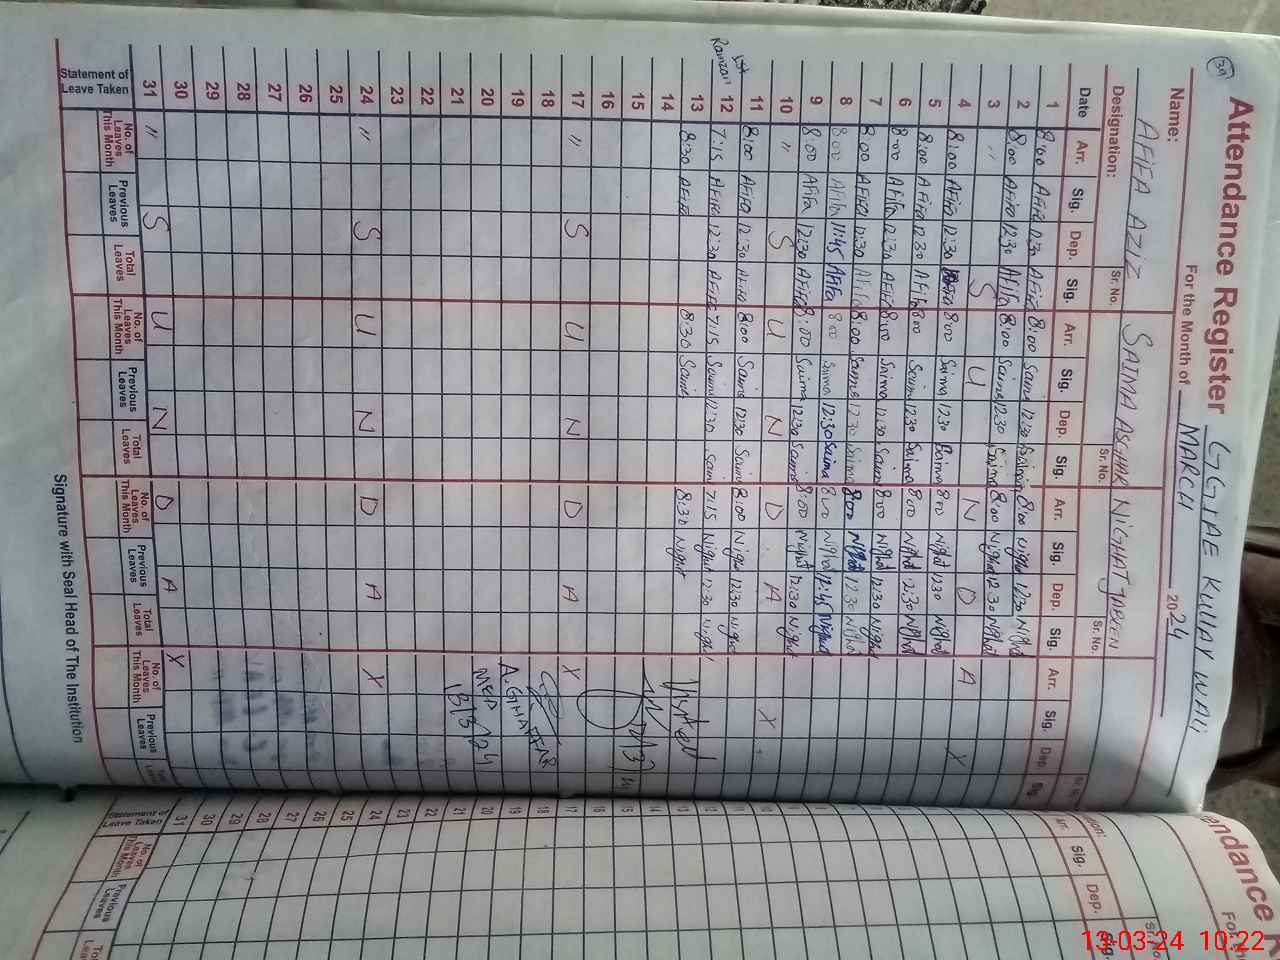 39
Attendance Register GGIAE KULLAY WALI
For the Month of MARCH 2024
Name: AFIFA AZIZ SAIMA ASGHAR NIGHAT JABEEN
Designation: Sr. No. Sr. No. Sr. No.
Date Arr. Sig. Dep. Sig. Arr. Sig. Dep. Sig. Arr. Sig. Dep. Sig. Arr. Sig. Dep. Sig.
1 8:00 Afifa 12:30 Afifa 8:00 Saima 12:30 8:00 Nighat 12:30 Nighat
2 8:00 Afifa 12:30 Afifa 8:00 Saima 12:30 Saima 8:00 Nighat 12:30 Nighat
3 " S U N D A Y
4 8:00 Afifa 12:30 Afifa 8:00 Saima 12:30 Saima 8:00 Nighat 12:30 Nighat
5 8:00 Afifa 12:30 Afifa 8:00 Saima 12:30 Saima 8:00 Nighat 12:30 Nighat
6 8:00 Afifa 12:30 Afifa 8:00 Saima 12:30 Saima 8:00 Nighat 12:30 Nighat
7 8:00 Afifa 12:30 Afifa 8:00 Saima 12:30 Saima 8:00 Nighat 12:30 Nighat
8 8:00 Afifa 11:45 Afifa 8:00 Saima 12:30 Saima 8:00 Nighat 12:45 Nighat
9 8:00 Afifa 12:30 Afifa 8:00 Saima 12:30 Saima 8:00 Nighat 12:30 Nighat
10 " S U N D A Y
11 8:00 Afifa 12:30 Afifa 8:00 Saima 12:30 Saima 8:00 Nighat 12:30 Nighat
1st Ramzan 12 7:15 Afifa 12:30 Afifa 7:15 Saima 12:30 Saima 7:15 Nighat 12:30 Nighat
13 8:30 Afifa 8:30 Saima 8:30 Nighat
14
15
16
17 " S U N D A Y
18
19 A. GHAFFAR
20 MEA
21 13/3/24
22
23
24 " S U N D A Y
25
26
27
28
29
30
31 " S U N D A Y
Statement of Leave Taken No. of Leaves This Month Previous Leaves Total Leaves No. of Leaves This Month Previous Leaves Total Leaves No. of Leaves This Month Previous Leaves Total Leaves No. of Leaves This Month Previous Leaves
Signature with Seal Head of The Institution
endance R
For the
Arr. Sig. Dep. Sig.
12
13
14
15
16
17
18
19
20
21
22
23
24
25
26
27
28
29
30
31
Statement of Leave Taken No. of Leaves This Month Previous Leaves
13-03-24 10:22